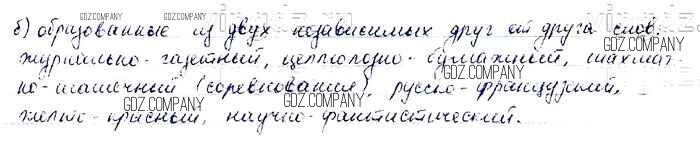 б) образованные из двух независимых друг от друга слов:
журнально-газетный, целлюлозно-бумажный, шахмат-
но-шашечный (соревнования), русско-французский,
желто-красный, научно-фантистический.
GDZ.COMPANY
GDZ.COMPANY
GDZ.COMPANY
GDZ.COMPANY
GDZ.COMPANY
GDZ.COMPANY
GDZ.COMPANY